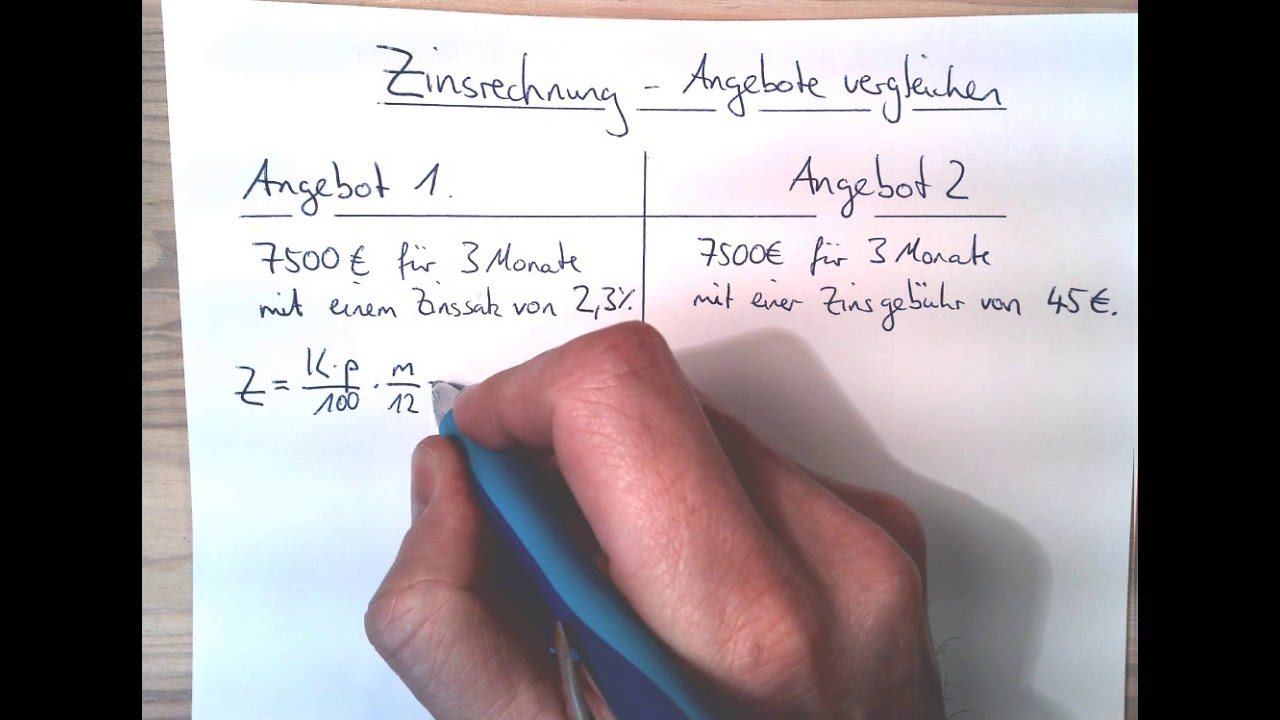 Zinsrechnung - Angebote vergleichen
Angebot 1.
7500 € für 3 Monate
mit einem Zinssatz von 2,3%
Z = K·p/100 · m/12
Angebot 2
7500€ für 3 Monate
mit einer Zinsgebühr von 45€.